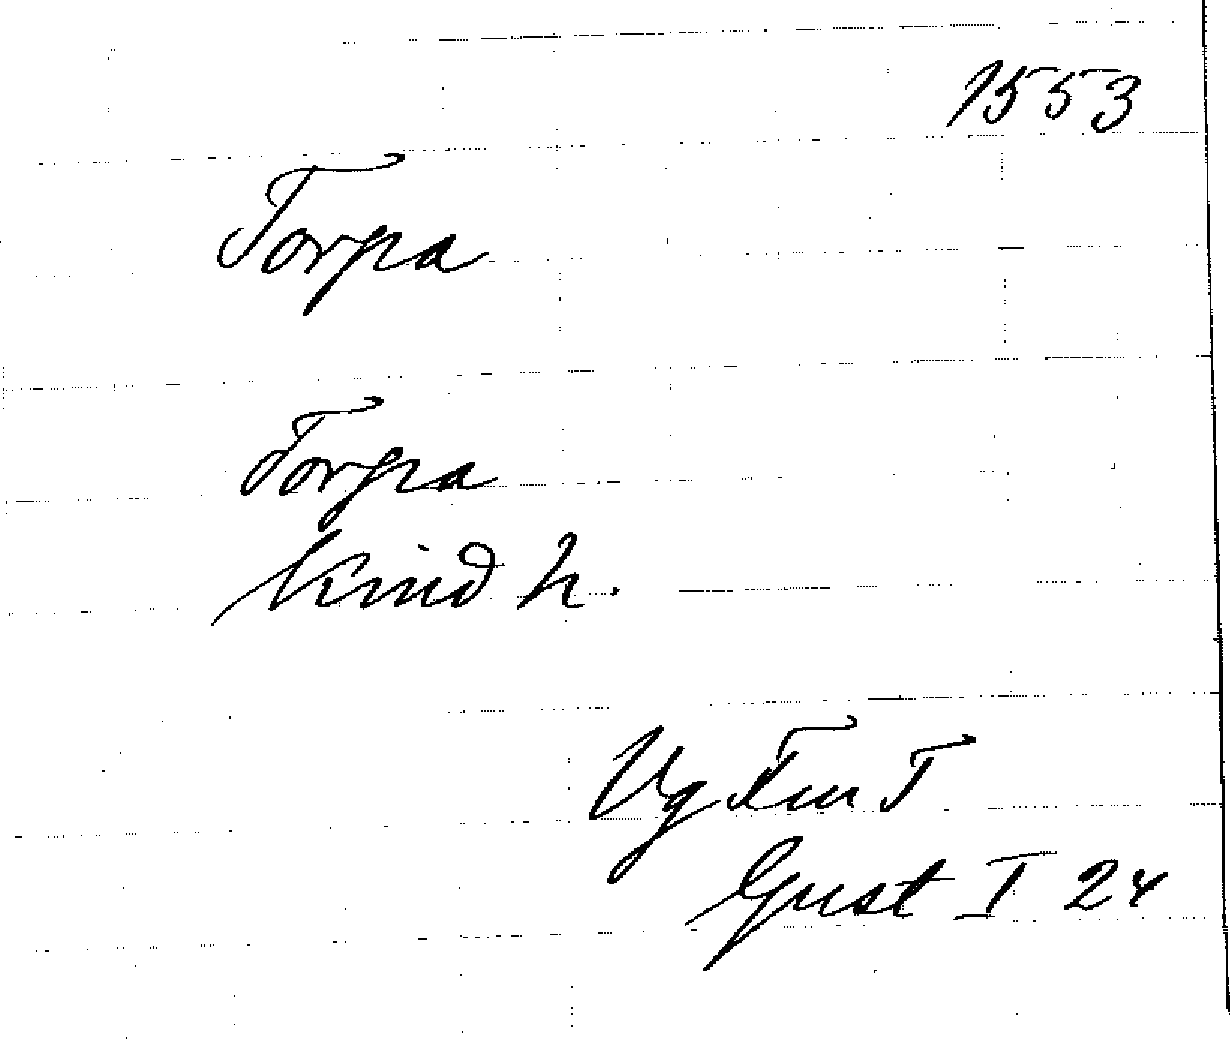 1553
Torpa
Torpa
Kind h.
Vg
Gust I 24